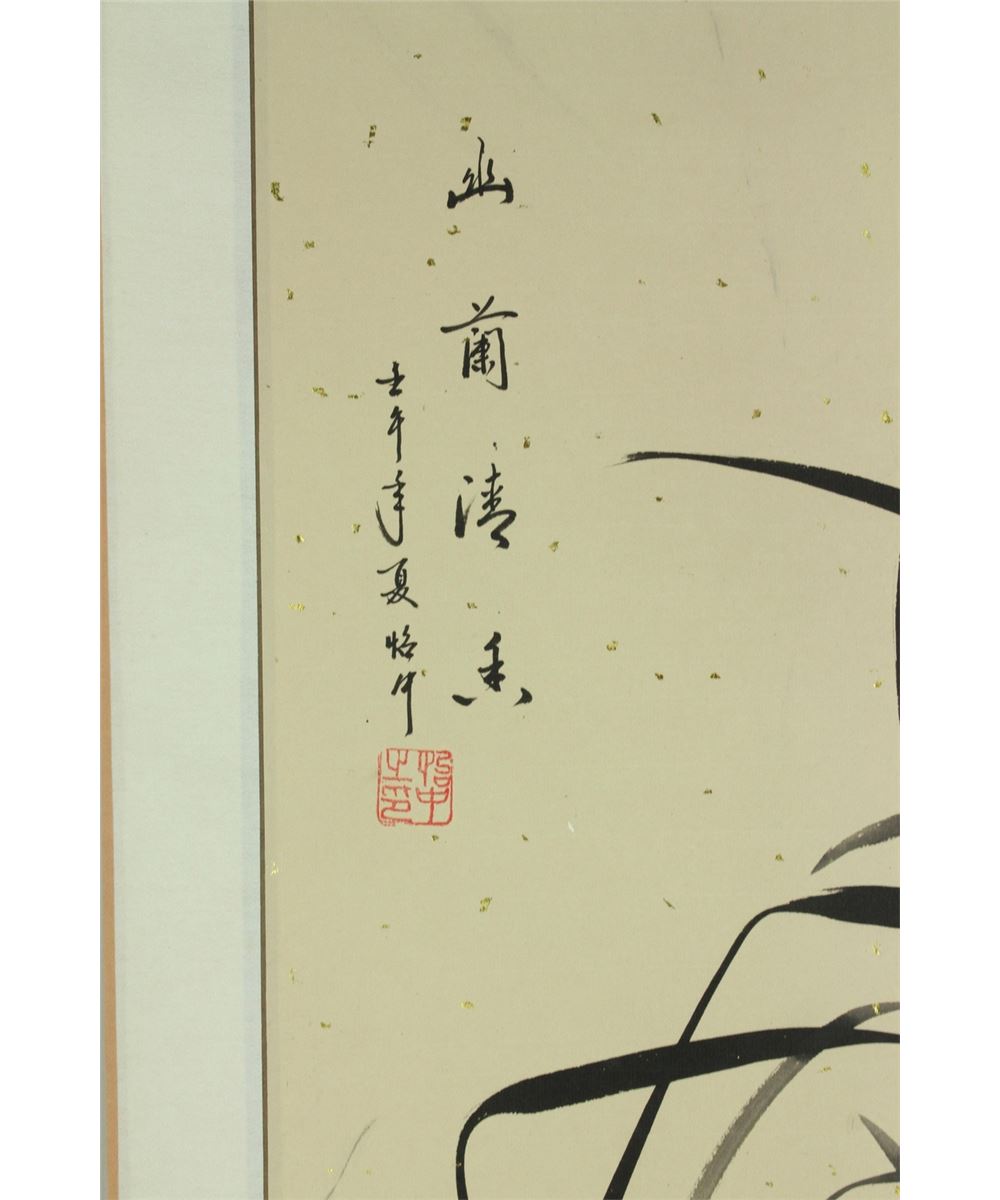 幽蘭清香
壬午年夏怡中
怡中之印